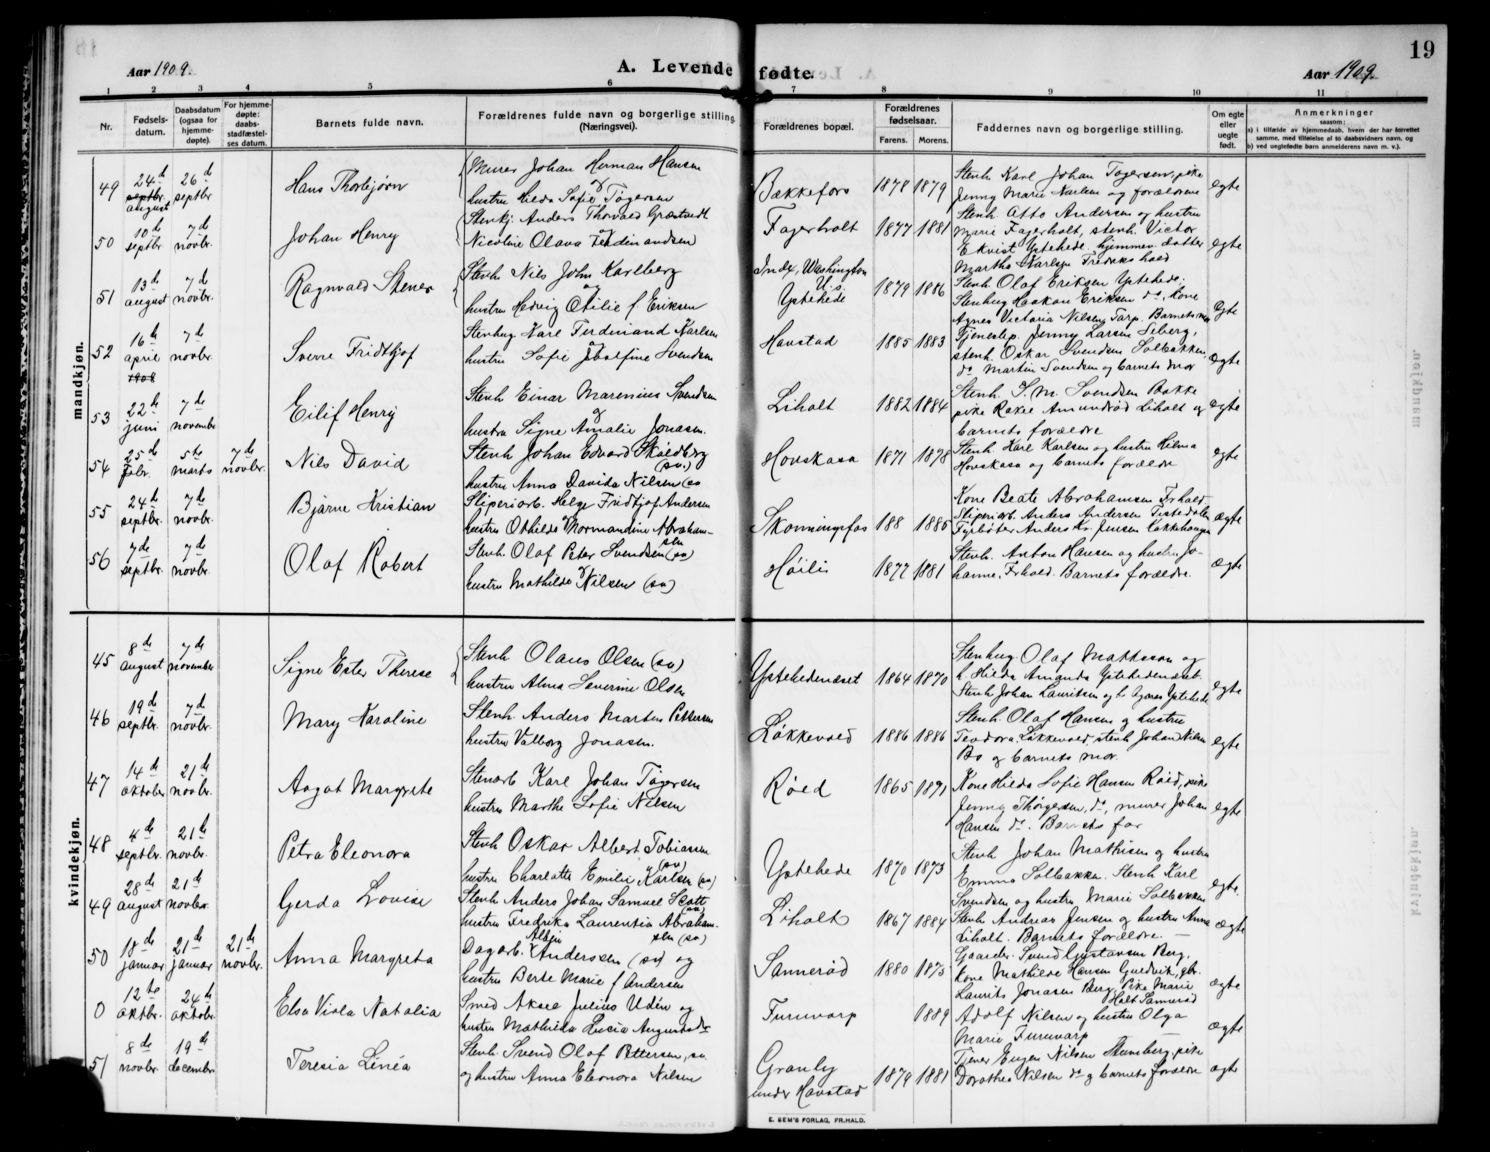 19
Aar 1909.
A. Levende fødte.
Aar 1909.
1 2 3 4 5 6 7 8 9 10 11
Nr.
Fødsels-
datum.
Daabsdatum
(ogsaa for
hjemme-
døpte).
For hjemme-
døpte:
daabs-
stadfæstel-
ses datum.
Barnets fulde navn.
Forældrenes fulde navn og borgerlige stilling
(Næringsvei).
Forældrenes bopæl.
Forældrenes
fødselsaar.
Farens. Morens.
Faddernes navn og borgerlige stilling.
Om egte
eller
uegte
født.
Anmerkninger
saasom:
a) i tilfælde av hjemmedaab, hvem der har forrettet
samme, med tilføielse af to daabsvidners navn, og
b) ved uegtefødte barn anmelderens navn m. v.).
mandkjøn.
49
24d
septbr.
august
26d
septbr
Hans Thorbjørn
Murer Johan Herman Hansen
hustru Hilda Sofie Tøgersen
Bakkefors
1878 1879
Stenh Karl Johan Tøgersen, pike
Jenny Marie Nielsen og forældrene
egte
50
10de
septbr
7d
novbr.
Johan Henry
Stenhj. Anders Thorvald Græstvedt
Nicoline Olava Ferdinandsen
Fagerholt
1877 1881
Stenh. Otto Andersen og hustru
Marie Fagerholt, stenh. Victor
Ekvist Ystehede. hjemmev. datter
Martha Karlsen Fredriks hald
egte
51
13de
august
7d
novbr.
Ragnvald Stener
Stenh Nils John Karlberg
og
hustru Hedvig Otilie f. Eriksen
Indx, Washington
U.s.
Ystehede
1879 1886
Stenh Olaf Eriksen Ystehede.
Stenhug Haakon Eriksen do. Kone
Agnes Victoria Nilsen, Torp. Barnets mor
egte
52
16de
april
1908
7d
novbr.
Sverre Fridthjof
Stenhug. Karl Ferdinand Karlsen
hustru Sofie Adolfine Svendsen
Havstad
1885 1883
Tjenestep. Jenny Larsen Seberg,
stenh. Oskar Svendsen Solbakken,
do Martin Svendsen og barnets mor
ægte
53
22de
juni
7de
november
Eilif Henry
Stenh Einar Marenius Svendsen
hustru Signe Amalie Jonasen.
Liholt
1882 1884
Stenh. S. M. Svendsen Bakke
pike Rakel Amundrød Liholt og
barnets forældre
ægte
54
25de
febr.
5te
marts
7de
novbr.
Nils David
Stenh Johan Edvard Skoldberg
(sv.)
hustru Anna Davida Nilsen (sv
Hovskasa
1871 1878
Stenh Karl Karlsen og hustru Hilma
Hovskasa og barnets forældre
egte
55
24de
septbr.
7de
novbr.
Bjarne Kristian
Sliperiarb. Helge Fridtjof Andersen
hustru Othilde Normandine Abraham-
sen
Skonningsfos
188 1885
Kone Beate Abrahamsen Frhald
Sliperiarb. Anders Andersen Tistedalen
Fyrbøter Anders Kr. Jensen Løkkehaugen
ægte
56
7de
septbr.
7de
novbr.
Olaf Robert
Stenh Olaf Peter Svendsen (sv)
hustru Mathilde Nilsen (sv)
Høili
1877 1881
Stenh. Anton Hansen og hustru Jo-
hanne, Frhald. Barnets forældre.
ægte
kvindekjøn.
45
8de
august
7de
november
Signe Ester Therese
Stenh Olaus Olsen (sv)
hustru Alma Severine Olsen
Ystehedenæset
1864 1870
Stenhug Olaf Mattisson og
h Hilda Amanda Ystehedenæset.
Stenh Johan Lauritsen og h. Agnes Ystehede
egte
46
19de
septbr.
7de
novbr.
Mary Karoline
Stenh. Anders Marten Pettersen
hustru Valborg Jonasen.
Løkkevold
1886 1886
Stenh. Olaf Hansen og hustru
Teodora Løkkevold, stenh Johan Nilsen
Bo og barnets mor.
egte
47
14de
oktober
21de
novbr.
Aagot Margrete
Stenarb Karl Johan Tøgersen
hustru Marthe Sofie Nilsen
Røed
1865 1871
Kone Hilda Sofie Hansen Røed, pike
Jenny Thørgersen, do, murer Johan
Hansen do. Barnets far
egte
48
4de
septbr.
21de
novbr.
Petra Eleonora
Stenh Oskar Albert Tobiassen
(sv)
hustru Charlotte Emilie Karlsen (sv)
Ystehede
1870 1873
Stenh Johan Mathisen og hustru
Emma Solbakke. Stenh Karl
Svendsen og hustru Marie Solbakken
egte.
49
28de
august
21de
novber
Gerda Lovise
Stenh Anders Johan Samuel Skott
(sv)
hustru Fredrika Laurentia Abraham-
sen (sv)
Liholt
1867 1884
Stenh Andreas Jensen og hustru Anna
Liholt. Barnets forældre. —
ægte
50
18de
januar
21de
januar
21de
novbr.
Anna Margreta
Albin
Dagarb. Anderssen (sv) og
hustru Berte Marie f Andersen
Sannerød
1880 1875
Gaarder. Svend Gustavsen Berg,
kone Mathilde Hansen Guedvik, gbr.
Laurits Jonasen Berg, Pike Marie
Holt Sannerød
ægte
0
12te
oktbr.
24de
oktober
Elsa Viola Natalia
Smed Aksel Julius Udén og
hustru Mathilda Lucia Augusta do
Furuvarp
1889
Adolf Nilsen og hustru Olga
Marie Furuvarp —
ægte
51
8de
novbr.
19de
december
Teresia Linéa
Stenh. Svend Olaf Pettersen, sv.
og hustru Anna Eleonora Nilsen
Granby
under Havstad
1879 1881
Tjener Eugen Nilsen Stumberg, pike
Dorothea Nilsen do og barnets forældre
ægte
E. SEM'S FORLAG, FR.HALD.